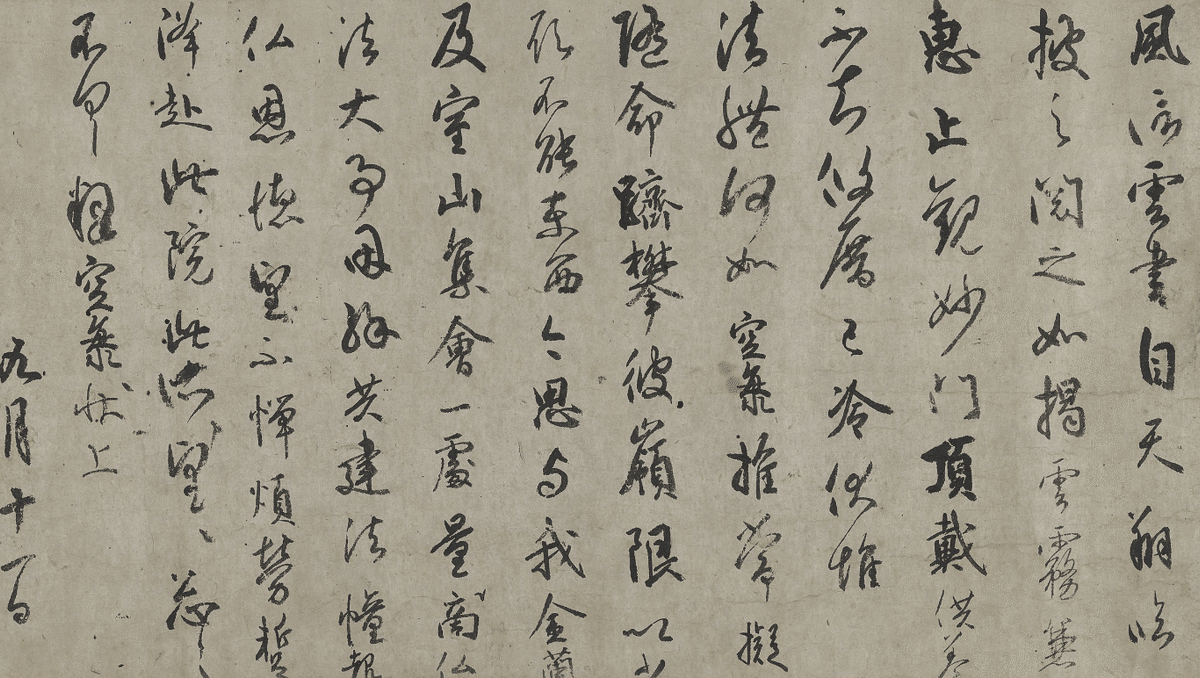 風信雲書自天翔臨
披之閲之如揭雲霧兼
恵止観妙門頂戴供養
不知攸厝已冷伏惟
法體何如空海推常擬
隨命躋攀彼嶺限以少
願不能東西今思与我金蘭
及室山集會一處量商仏
法大事因縁共建法幢報
仏恩徳望不憚煩勞蹔
降赴此院此所望〻忩〻
不具釋空海状上
九月十一日